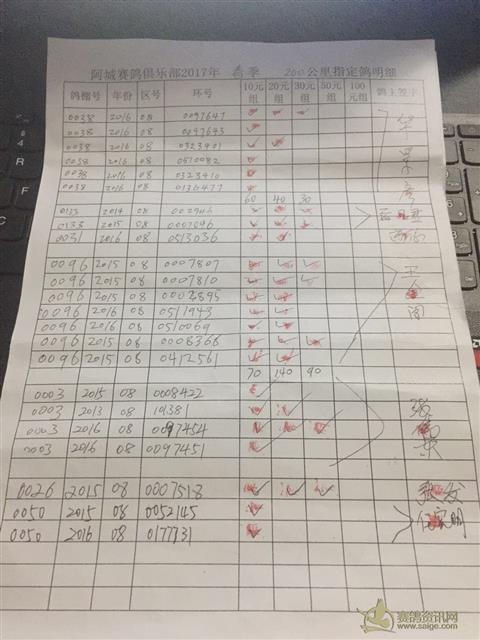 阿城赛鸽俱乐部2017年 春季 200公里指定鸽明细
鸽棚号 年份 区号 环号 10元组 20元组 30元组 50元组 100元组 鸽主签字
0038 2016 08 0097647 ✓ ✓ ✓
0038 2016 08 0097643 ✓
0038 2016 08 0323401 ✓ ✓
0038 2016 08 0510082 ✓
0038 2016 08 0323410 ✓
0038 2016 08 0136477 ✓
60 40 30
0133 2014 08 ✓ ✓ ✓
0133 2015 08 ✓ ✓ ✓
0031 2016 08 0513036 ✓ ✓
0096 2015 08 0007807 ✓ ✓ ✓
0096 2015 08 0007810 ✓ ✓ ✓
0096 2015 08 ✓ ✓
0096 2016 08 0511943 ✓ ✓
0096 2016 08 0510069 ✓ ✓
0096 2015 08 0008368 ✓ ✓ ✓
0096 2015 08 0412561 ✓ ✓
70 140 90
0003 2015 08 0008422 ✓
0003 2013 08 19381 ✓ ✓
0003 2016 08 0097454 ✓ ✓ ✓
0003 2016 08 0097451 ✓
0026 2015 08 0007518 ✓ ✓ ✓
0050 2015 08 0052145 ✓
0050 2016 08 0177331 ✓
赛鸽资讯网
www.saige.com